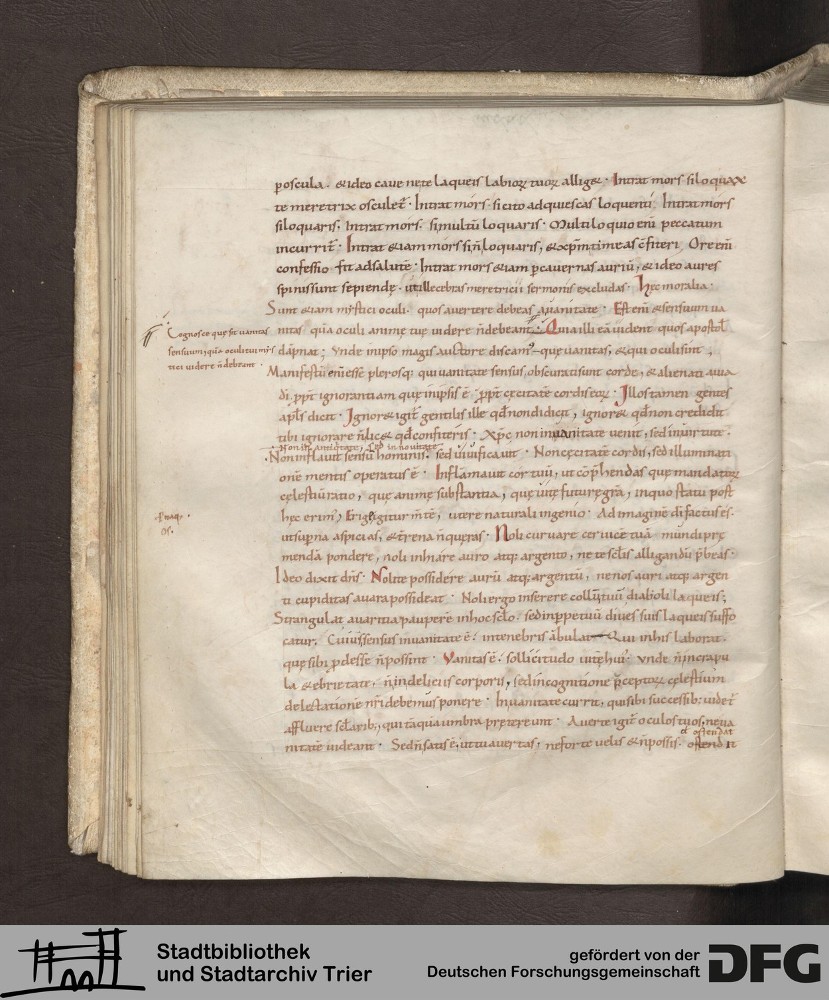 p oscula. & ideo cave ne te laqueis labioꝝ tuoꝝ allig&. Intrat mors si loquax
te meretrix osculet̄. Intrat mors si cito adquiescas loquenti. Intrat mors
si loquaris. Intrat mors. si multū loquaris. Multiloquio enī peccatum
incurrit̄. Intrat &iam mors si n̄ loquaris, & xp̄m timeas c̄fiteri. Ore enī
confessio fit ad salutē. Intrat mors &iam p cavernas auriū, & ideo aures
spinis sunt sepiendę. ut illecebras meretricii sermonis excludas. Hęc moralia.
Sunt &iam mystici oculi. quos avertere debeas a vanitate. Est enī & sensuum va
nitas quā oculi animę tuę videre n̄ debeant. Quia illi eā vident quos apostol̄
dāpnat; Vnde in ipso magis auctore discam' quę vanitas, & qui oculi sint.
Manifestū enī esse plerosq; qui vanitate sensus, obscurati sunt corde, & alienati a via
di, ppt̄ ignorantiam quę in ipsis ē ppt̄ cęcitatē cordis eoꝝ. Illos tamen gentes
apl̄s dicit. Ignor& igit̄ gentilis ille qd̄ non didicit, ignor& qd̄ non credidit
tibi ignorare n̄ lic& qd̄ confiteris. Xp̄c non in vanitate venit, sed in virtute.
Non in antiq̄tate, sed in novitate
Non inflavit sensū hominis. sed vivificavit. Non cęcitatē cordis, sed illuminati
onē mentis operatus ē. Inflāmavit cor tuū, ut cōp̄hendas quę mandatoꝝ
cęlestiū ratio, quę animę substantia, quę vitę futurę gr̄a, in quo statu post
hęc erim', Erige igitur m̄tē, utere naturali ingenio. Ad imaginē di factus es.
ut supna aspicias, & t̄rena n̄ quęras. Noli curvare cervicē tuā mundi prę
menda pondere, noli inhiare auro atq; argento, ne te sc̄lis alligandū p̄beas.
Ideo dixit dn̄s. Nolite possidere aurū atq; argentū, ne nos auri atq; argen
ti cupiditas avara possideat. Noli ergo inserere collū tuū diaboli laqueis;
Strangulat avaritia paupere in hoc sc̄lo. sed in ppetuū dives suis laqueis suffo
catur. Cuius sensus in vanitate ē. in tenebris ābulat. Qui in his laborat.
quę sibi pdesse n̄ possint. Vanitas ē. sollicitudo vitę hui'. Vnde n̄ in crapu
la & ebrietate, n̄ in deliciis corporis, sed in cognitione p̄ceptoꝝ cęlestium
delectationē nr̄i debemus ponere. In vanitate currit, qui sibi successib; videt̄
affluere sc̄larib;, qui tāquā umbra prętereunt. Averte igit̄ oculos tuos, ne va
nitatē videant. Sed n̄ satis ē, ut tu avertas, ne forte velis & n̄ possis. ostendit
ostendat
Cognosce quę sit vanitas
sensuum, quā oculi tui mis
tici videre n̄ debeant.
Stadtbibliothek
und Stadtarchiv Trier
gefördert von der
Deutschen Forschungsgemeinschaft
DFG